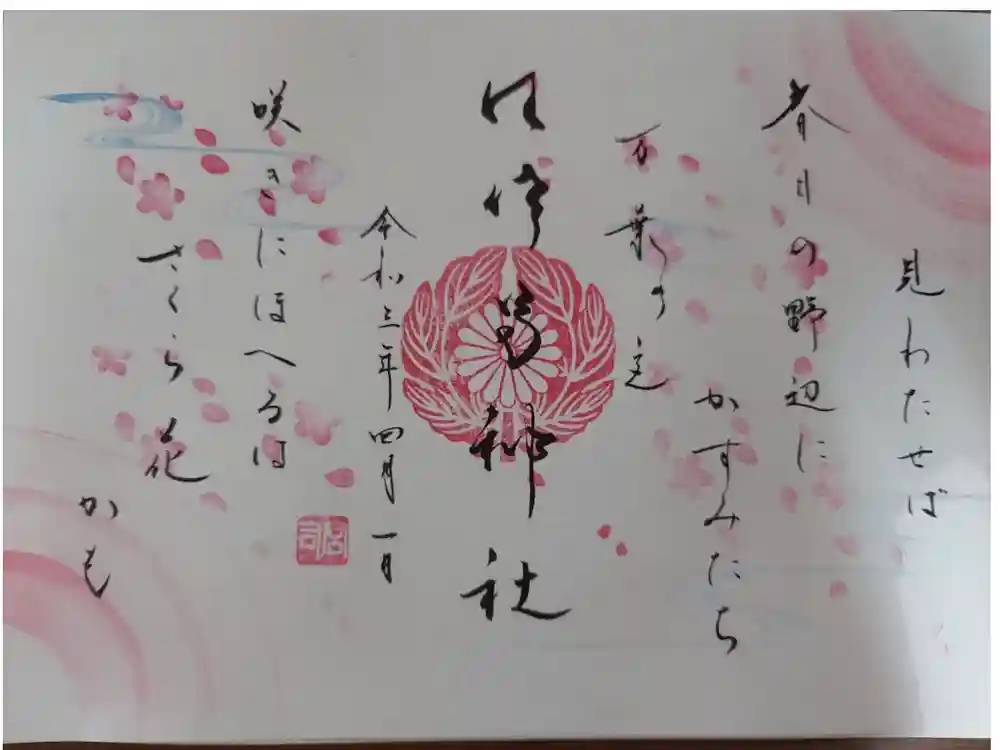 見わたせば
春日の野辺に
かすみたち
万葉の
神社
令和三年四月一日
咲きにほへるは
さくら花
かも